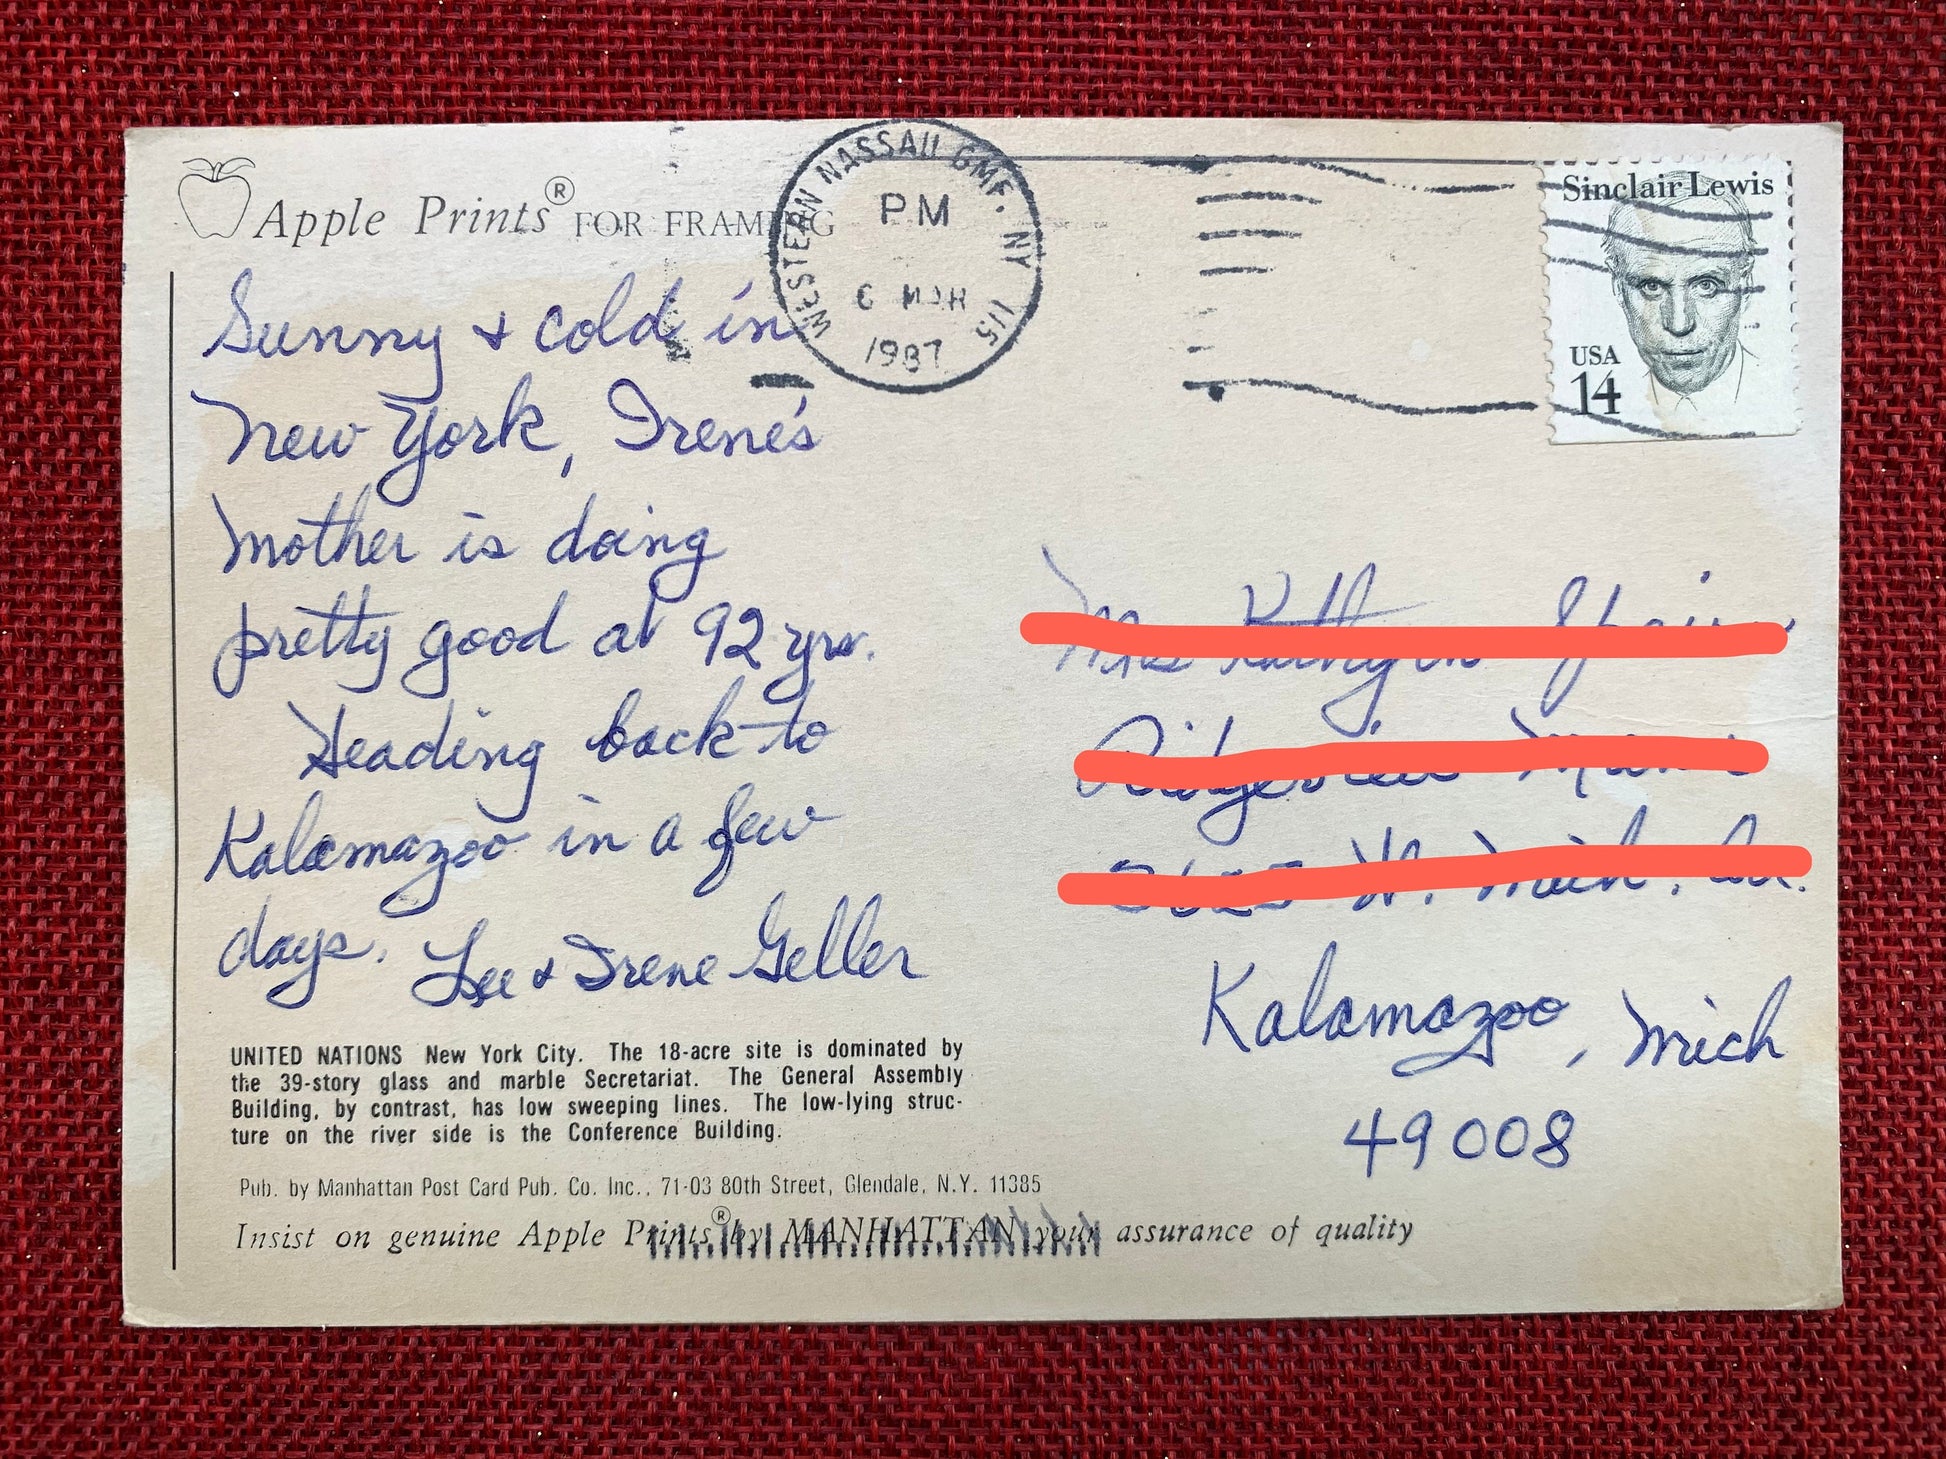 Apple Prints® FOR FRAMING
WESTERN NASSAU GMF. NY 115
PM
6 MAR
1987
Sinclair Lewis
USA
14
Sunny & cold in
New York, Irene's
Mother is doing
pretty good at 92 yrs.
Heading back to
Kalamazoo in a few
days. Lee & Irene Geller
Kalamazoo, Mich
49008
UNITED NATIONS New York City. The 18-acre site is dominated by
the 39-story glass and marble Secretariat. The General Assembly
Building, by contrast, has low sweeping lines. The low-lying struc-
ture on the river side is the Conference Building.
Pub. by Manhattan Post Card Pub. Co. Inc., 71-03 80th Street, Glendale, N.Y. 11385
Insist on genuine Apple Prints® by MANHATTAN your assurance of quality